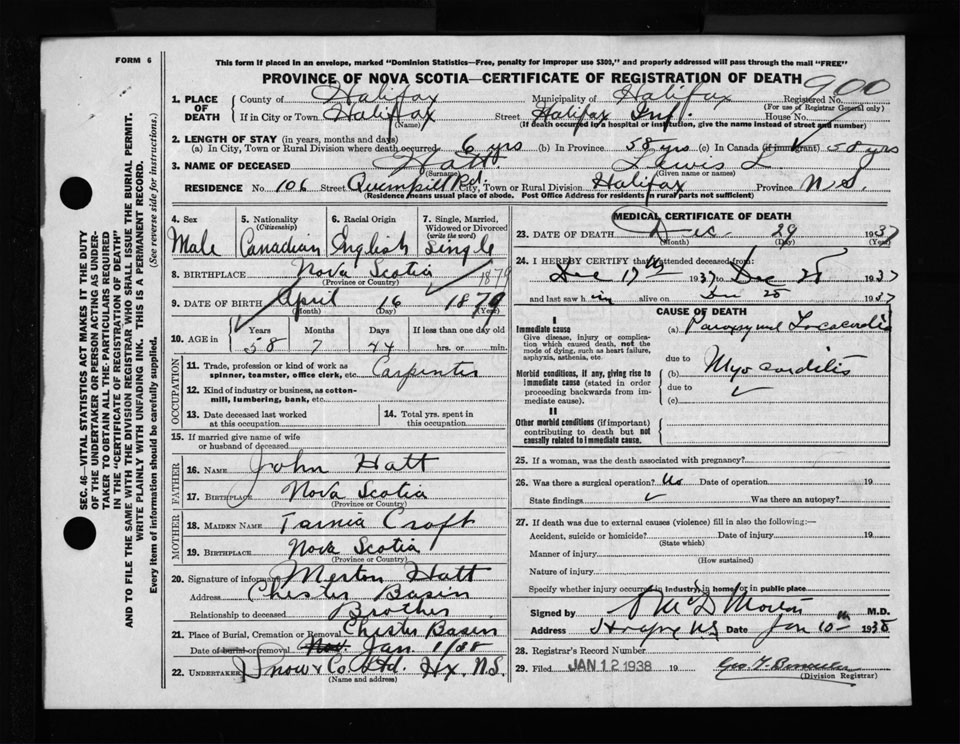 FORM 6
This form if placed in an envelope, marked "Dominion Statistics—Free, penalty for improper use $300," and properly addressed will pass through the mail "FREE"
PROVINCE OF NOVA SCOTIA—CERTIFICATE OF REGISTRATION OF DEATH
900
1. PLACE OF DEATH { County of Halifax Municipality of Halifax Registered No.
(For use of Registrar General only)
If in City or Town Halifax Street Halifax Inf. House No.
(Name) (If death occurred in a hospital or institution, give the name instead of street and number)
2. LENGTH OF STAY (in years, months and days)
(a) In City, Town or Rural Division where death occurred 6 yrs (b) In Province 58 yrs (c) In Canada (if immigrant) 58 yrs
3. NAME OF DECEASED Hatt Lewis L
(Surname) (Given name or names)
RESIDENCE No. 106 Street Quinpill Rd. City, Town or Rural Division Halifax Province N.S.
(Residence means usual place of abode. Post Office Address for residents in rural parts not sufficient)
4. Sex Male
5. Nationality (Citizenship) Canadian
6. Racial Origin English
7. Single, Married, Widowed or Divorced (write the word) Single
8. BIRTHPLACE Nova Scotia
(Province or Country)
1879
9. DATE OF BIRTH April 16 1879
(Month) (Day) (Year)
10. AGE in Years Months Days If less than one day old
58 7 hrs. or min.
OCCUPATION
11. Trade, profession or kind of work as spinner, teamster, office clerk, etc. Carpenter
12. Kind of industry or business, as cotton-mill, lumbering, bank, etc.
13. Date deceased last worked at this occupation
14. Total yrs. spent in this occupation
15. If married give name of wife or husband of deceased
FATHER
16. NAME John Hatt
17. BIRTHPLACE Nova Scotia
(Province or Country)
MOTHER
18. MAIDEN NAME Croft
19. BIRTHPLACE Nova Scotia
(Province or Country)
20. Signature of informant Merton Hatt
Address Chester Basin
Relationship to deceased Brother
21. Place of Burial, Cremation or Removal Chester Basin
Date of burial or removal Nov. Jan. 1/38
22. UNDERTAKER Snow & Co Ltd. Hx, N.S.
(Name and address)
MEDICAL CERTIFICATE OF DEATH
23. DATE OF DEATH Dec 29 1937
(Month) (Day) (Year)
24. I HEREBY CERTIFY that I attended deceased from:
Dec 17th 1937 to Dec 28 1937
and last saw him alive on Dec 28 1937
CAUSE OF DEATH
I
Immediate cause
Give disease, injury or complication which caused death, not the mode of dying, such as heart failure, asphyxia, asthenia, etc.
(a)
due to
Morbid conditions, if any, giving rise to immediate cause (stated in order proceeding backwards from immediate cause).
(b) Myocarditis
due to
(c)
II
Other morbid conditions (if important) contributing to death but not causally related to immediate cause.
25. If a woman, was the death associated with pregnancy?
26. Was there a surgical operation? No Date of operation 19
State findings Was there an autopsy?
27. If death was due to external causes (violence) fill in also the following:—
Accident, suicide or homicide? Date of injury 19
(State which)
Manner of injury
(How sustained)
Nature of injury
Specify whether injury occurred in industry, in home or in public place
Signed by M.D.
Address N.S. Date Jan 10th 1938
28. Registrar's Record Number
29. Filed JAN 12 1938 19
(Division Registrar)
SEC. 46—VITAL STATISTICS ACT MAKES IT THE DUTY
OF THE UNDERTAKER OR PERSON ACTING AS UNDER-
TAKER TO OBTAIN ALL THE PARTICULARS REQUIRED
IN THE "CERTIFICATE OF REGISTRATION OF DEATH"
AND TO FILE THE SAME WITH THE DIVISION REGISTRAR WHO SHALL ISSUE THE BURIAL PERMIT.
WRITE PLAINLY WITH UNFADING INK. THIS IS A PERMANENT RECORD.
Every item of information should be carefully supplied. (See reverse side for instructions.)